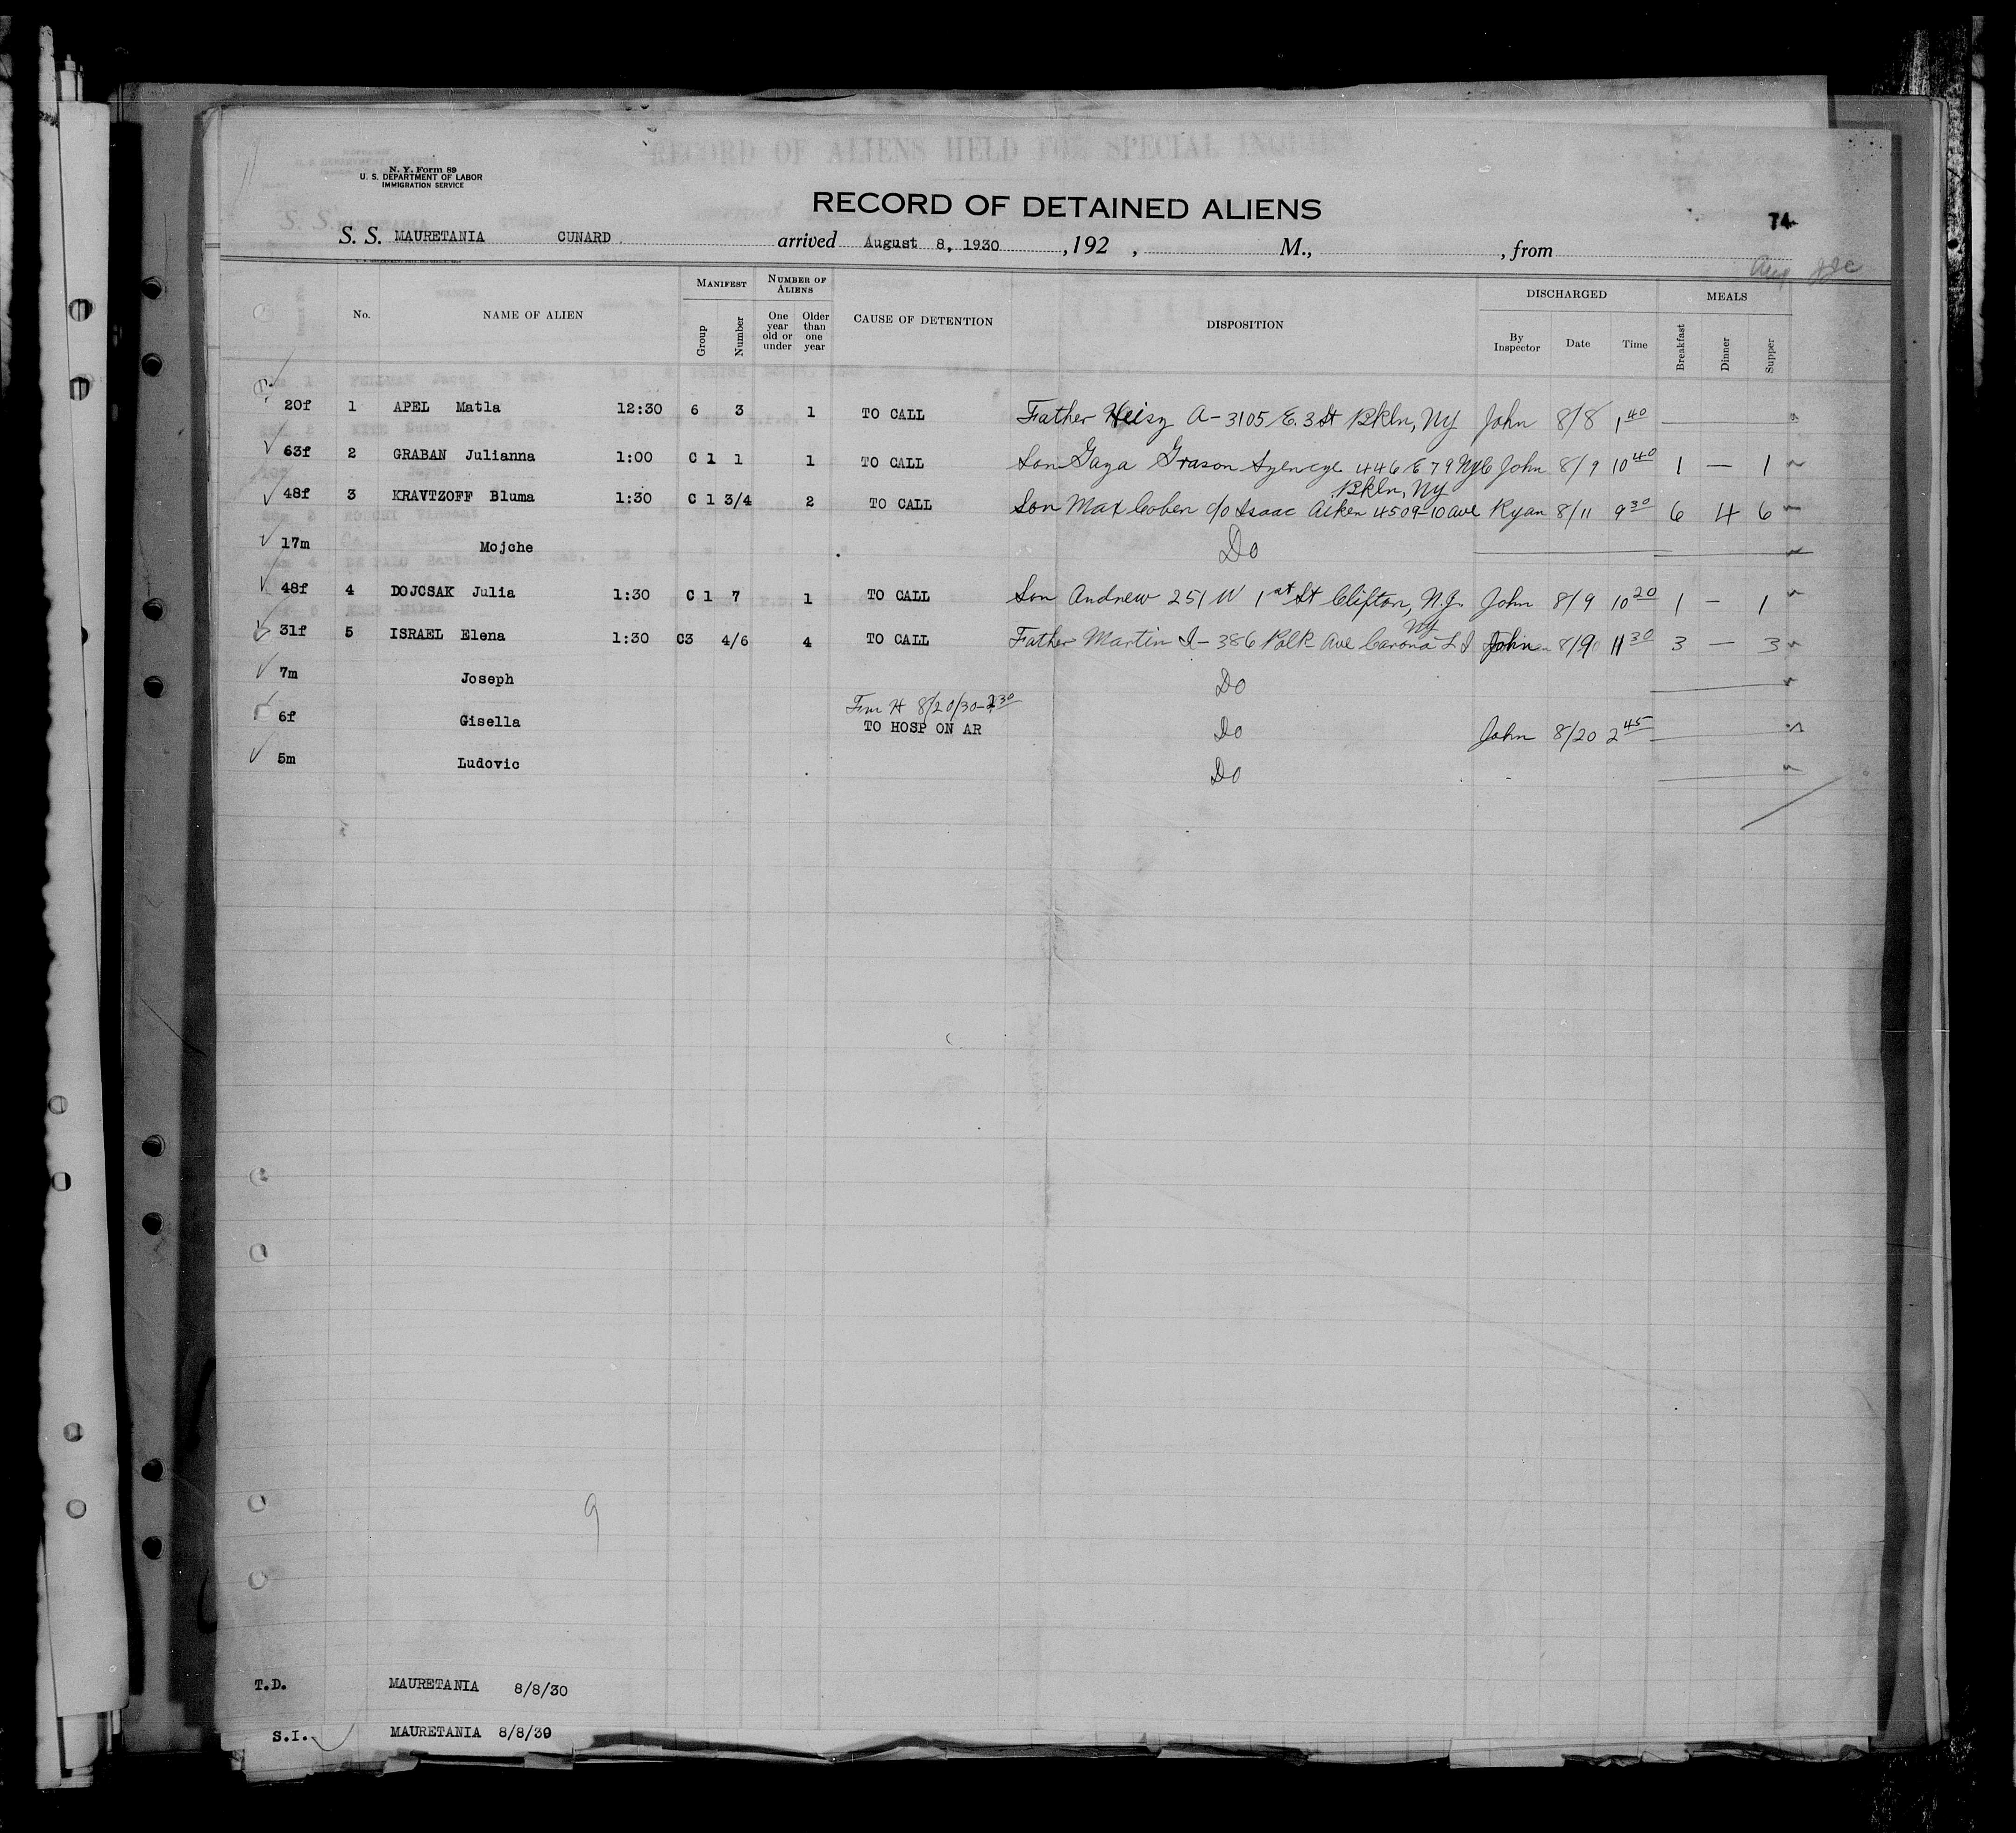 N. Y. Form 89
U. S. DEPARTMENT OF LABOR
IMMIGRATION SERVICE
RECORD OF ALIENS HELD FOR SPECIAL INQUIRY
RECORD OF DETAINED ALIENS
74
S. S. MAURETANIA CUNARD arrived August 8, 1930, 192 , M., , from
Aug
No. NAME OF ALIEN MANIFEST Group Number NUMBER OF ALIENS One year old or under Older than one year CAUSE OF DETENTION DISPOSITION DISCHARGED By Inspector Date Time MEALS Breakfast Dinner Supper
20f 1 APEL Matla 12:30 6 3 1 TO CALL Father Heisz A- 3105 E. 3 St Bkln, Ny John 8/8 1 40 —
63f 2 GRABAN Julianna 1:00 C 1 1 1 TO CALL Son Gaza Grason 446 E 79 NyC John 8/9 10 40 1 — 1
Bkln, Ny
48f 3 KRAVTZOFF Bluma 1:30 C 1 3/4 2 TO CALL Son Max Cohen c/o Isaac Aiken 4509-10 ave Ryan 8/11 9 30 6 4 6
17m Mojche Do
48f 4 DOJCSAK Julia 1:30 C 1 7 1 TO CALL Son Andrew 251 W 1st St Clifton, N.J. John 8/9 10 20 1 — 1
Ny
31f 5 ISRAEL Elena 1:30 C3 4/6 4 TO CALL Father Martin I- 386 Polk Ave Carona L I John 8/9 11 30 3 — 3
7m Joseph Do
Fm H 8/20/30- 2 30
6f Gisella TO HOSP ON AR Do John 8/20 2 45
5m Ludovic Do
9
T.D. MAURETANIA 8/8/30
S.I. MAURETANIA 8/8/30